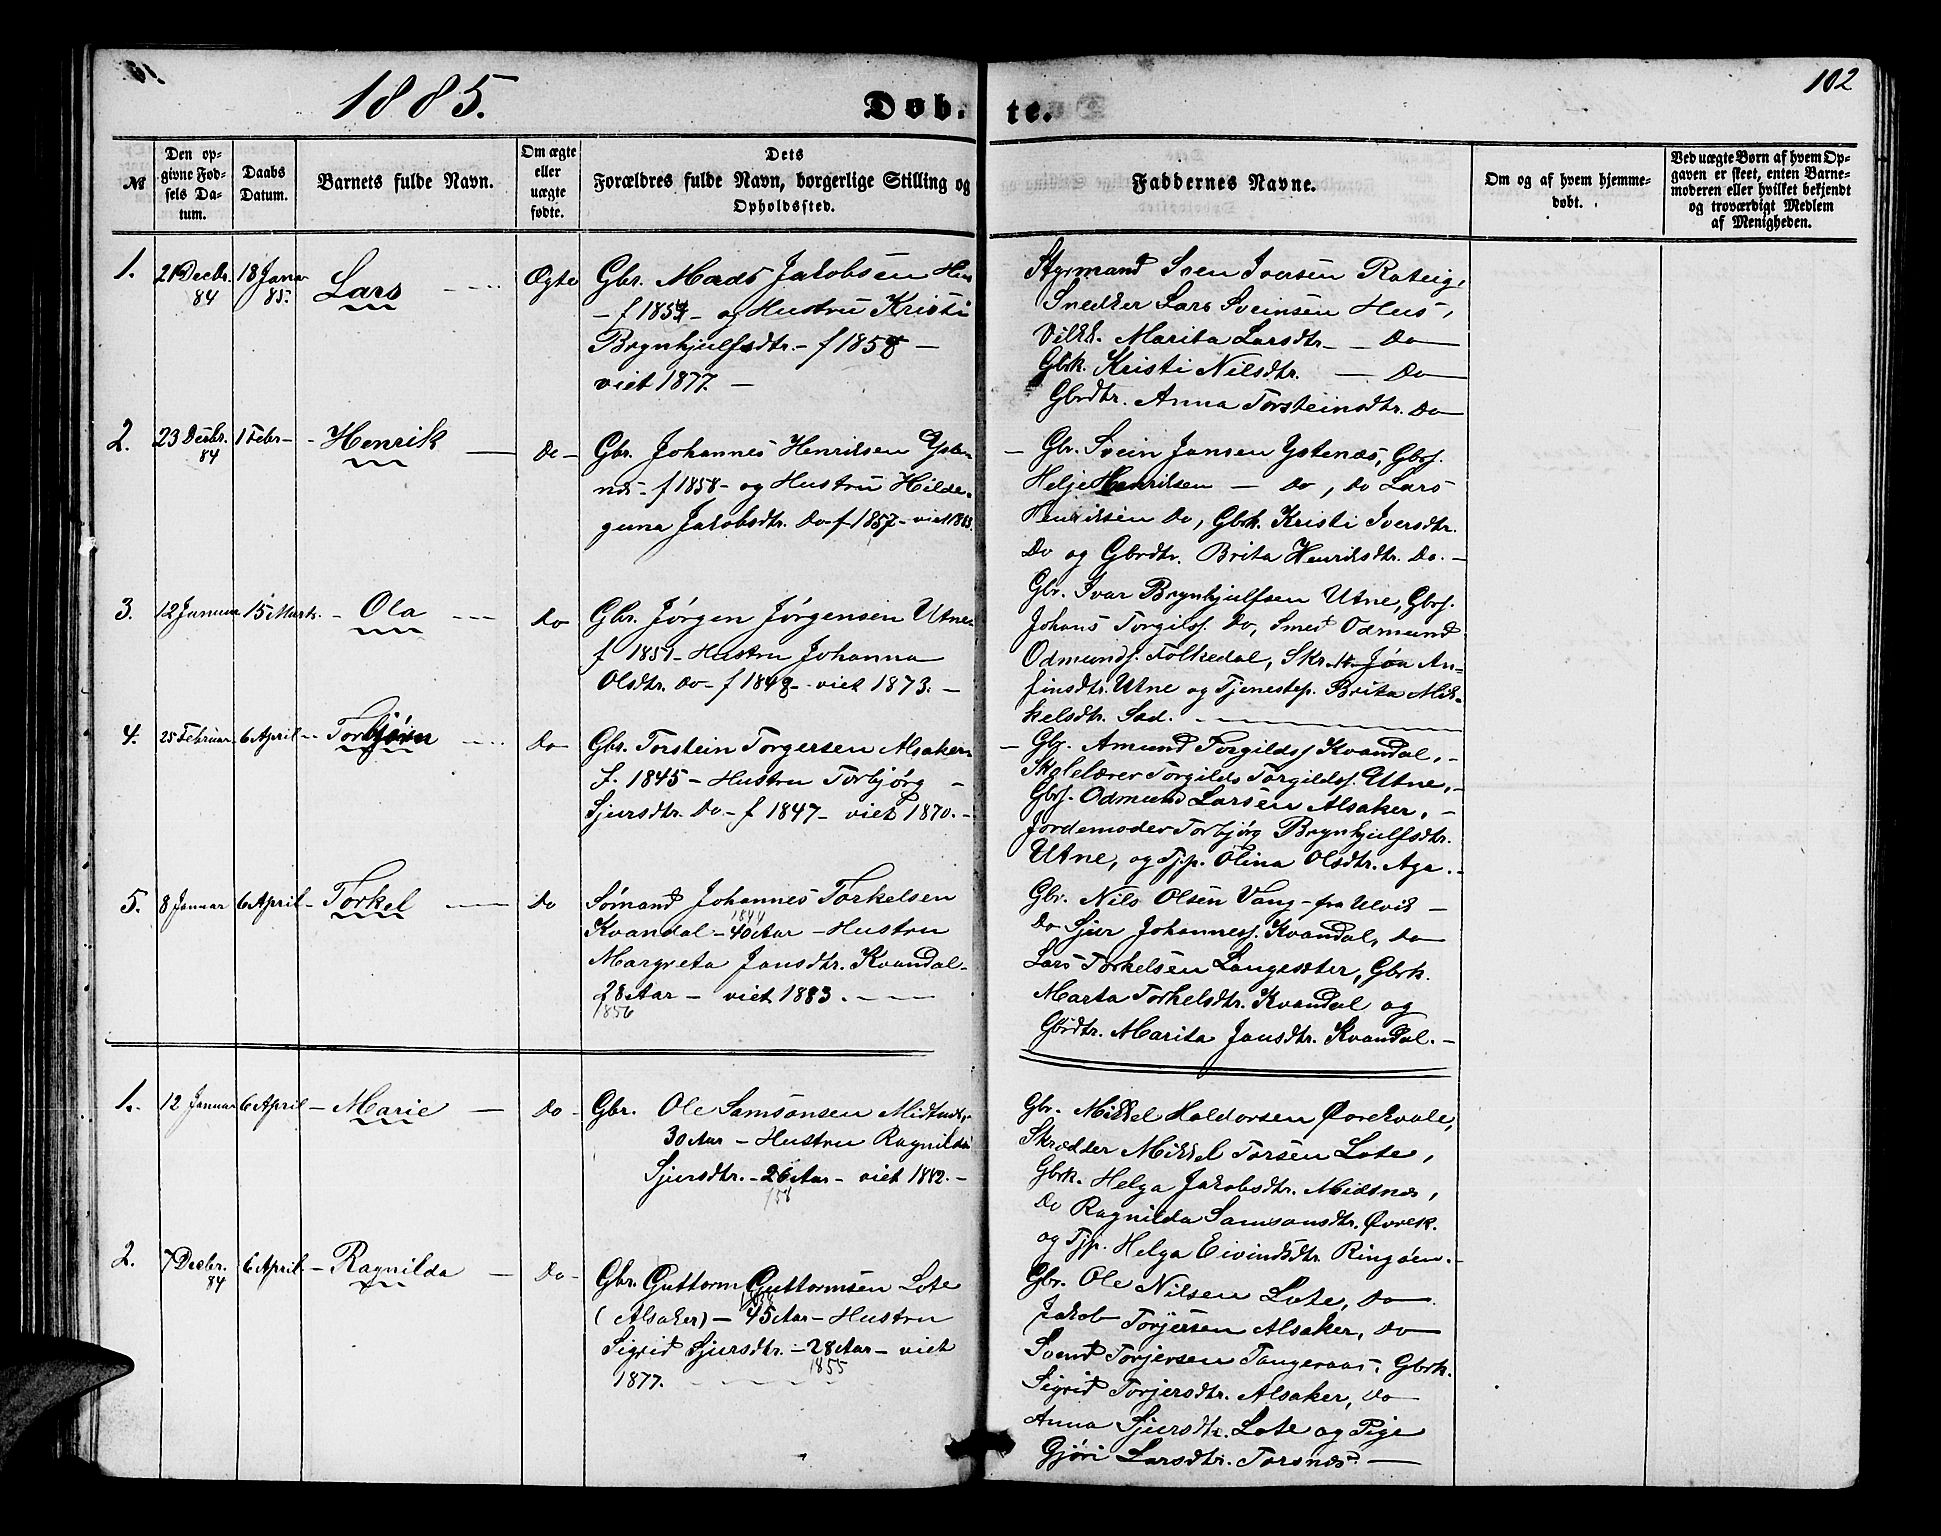 1885.
Døb-
te.
102
№
Den op-
givne Fød-
sels Da-
tum.
Daabs
Datum.
Barnets fulde Navn.
Om ægte
eller
uægte
fødte.
Dets
Forældres fulde Navn, borgerlige Stilling og
Opholdssted.
Faddernes Navne.
Om og af hvem hjemme-
døbt.
Ved uægte Børn af hvem Op-
gaven er skeet, enten Barne-
moderen eller hvilket bekjendt
og troværdigt Medlem
af Menigheden.
1.
21 Decbr.
84
18 Janr
85.
Lars
Ægte
Gbr. Mads Jakobsen Hus
- f 1854 - og Hustru Kristi
Brynhjulfsdtr. - f 1858 -
viet 1877. -
Styrmand Sven Iversen Rateig,
Snedker Lars Sveinsen Hus,
Vilkk. Marita Larsdtr - Do
Gbrk. Kristi Nilsdtr. - Do
Gbrdtr. Anna Torsteinsdtr. Do
2.
23 Decbr.
84
1 Febr -
- Henrik
Do -
Gbr. Johannes Henriksen Ysten-
næs - f 1858 - og Hustru Hilde-
guna Jakobsdtr. Do - f 1857 - viet 1883.
- Gbr. Svein Jansen Ystenæs, Gbrs.
Helje Henriksen - Do, Do Lars
Henriksen Do, Gbrk. Kristi Iversdtr.
Do og Gbrdtr. Brita Henriksdtr. Do. -
3.
12 Januar
15 Marts.
- Ola
Do
Gbr. Jørgen Jørgensen Utne
f 1851 - Hustru Johanna
Olsdtr. Do - f 1848 - viet 1873. -
Gbr. Ivar Brynhjulfsen Utne, Gbrs.
Johans Torgilss. Do, Smed Odmund
Odmunds. Folkedal, Skr. Jon An-
finsdtr. Utne og Tjenestep. Brita Mik-
kelsdtr. Sad.
4.
25 Februar
6 April -
- Torbjørn
Do
Gbr. Torstein Torgersen Alsaker
f. 1845 - Hustru Torbjørg -
Sjursdtr. Do - f 1847 - viet 1870. -
- Gbr. Amund Torgildss. Kvandal, -
Skolelærer Torgilds Torgildss. Utne, -
Gbrs. Odmund Larsen Alsaker, -
Jordemoder Torbjørg Brynhjulfsdtr.
Utne, og Tjp. Olina Olsdtr. Aga. -
5.
8 Januar
6 April -
Torkel
Do
Sømand Johannes Torkelsen
1844
Kvandal - 40 Aar - Hustru
Margreta Jansdtr. Kvandal -
28 Aar - viet 1883. -
1856
Gbr. Nils Olsen Vang - fra Ulvik -
Do Sjur Johanness. Kvandal, Do
Lars Torkelsen Langesæter, Gbrk.
Marta Torkelsdtr. Kvandal og
Gbrdtr. Marita Jansdtr. Kvandal. -
1.
12 Januar
6 April
- Marie -
Do -
Gbr. Ole Samsonsen Midtnæs,
30 Aar - Hustru Ragnilda
Sjursdtr. - 26 Aar - viet 1882. -
/58
Gbr. Mikkel Haldorsen Øvrekvale,
Skrædder Mikkel Torsen Lote,
Gbrk. Helga Jakobsdtr. Midtnæs,
Do Ragnilda Samsonsdtr. Øvrek.
og Tjp. Helga Eivindsdtr. Ringøen. -
2.
7 Decbr.
84
6 April
- Ragnilda -
Do -
Gbr. Guttorm Guttormsen Lote
(Alsaker) - 45 Aar - Hustru
Sigrid Sjursdtr. - 28 Aar - viet
1855
1877.
Gbr. Ole Nilsen Lote, Do
Jakob Torjersen Alsaker, Do
Svend Torjersen Tangeraas, Gbrk.
Sigrid Torjersdtr. Alsaker, Do
Anna Sjursdtr. Lote og Pige
Gjøri Larsdtr. Torsnæs. -